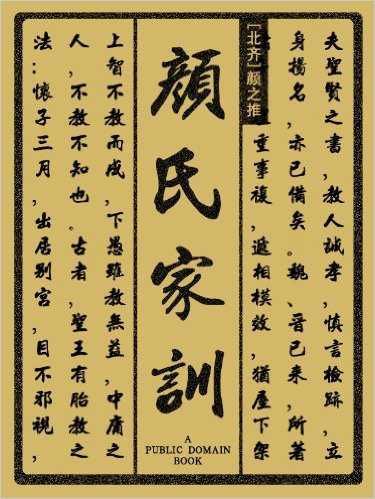 夫聖賢之書，教人誠孝，慎言檢跡，立
身揚名，亦已備矣。魏、晉已来，所著
[北齐]颜之推
重事複，遞相模效，猶屋下架
顔氏家訓
A
PUBLIC DOMAIN
BOOK
上智不教而成，下愚雖教無益，中庸之
人，不教不知也。古者，聖王有胎教之
法：懷子三月，出居别宫，目不邪視，